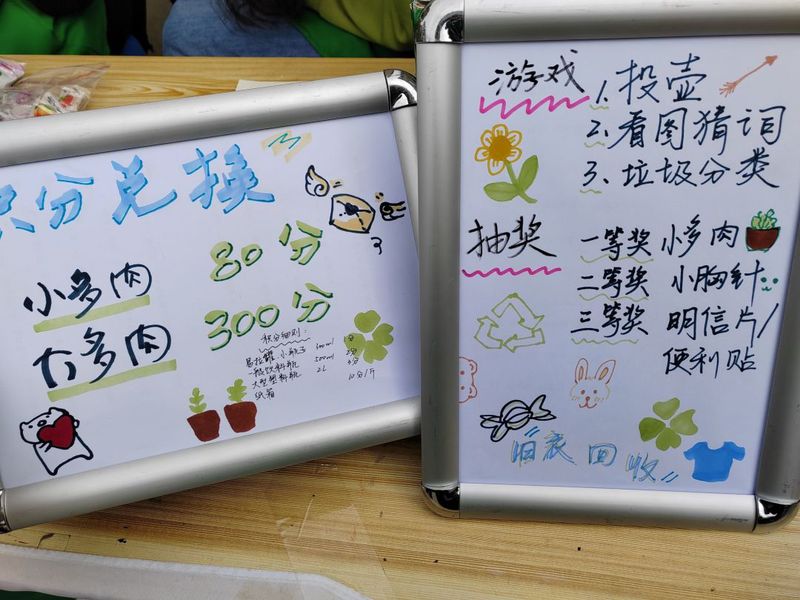 积分兑换
小多肉 80分
大多肉 300分
积分细则:
易拉罐 小瓶子 300ml 1分
一般饮料瓶 500ml 2分
大型塑料瓶 2L 4分
纸箱 10分/斤
游戏 1. 投壶
2. 看图猜词
3. 垃圾分类
抽奖 一等奖 小多肉
二等奖 小胸针
三等奖 明信片/
便利贴
旧衣回收